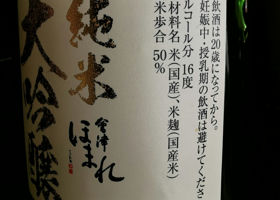 飲酒は20歳になってから。
妊娠中・授乳期の飲酒は避けてくださ
ルコール分 16度
材料名 米(国産)、米麹(国産米)
米歩合 50%
純米
大吟醸
會津
ほまれ